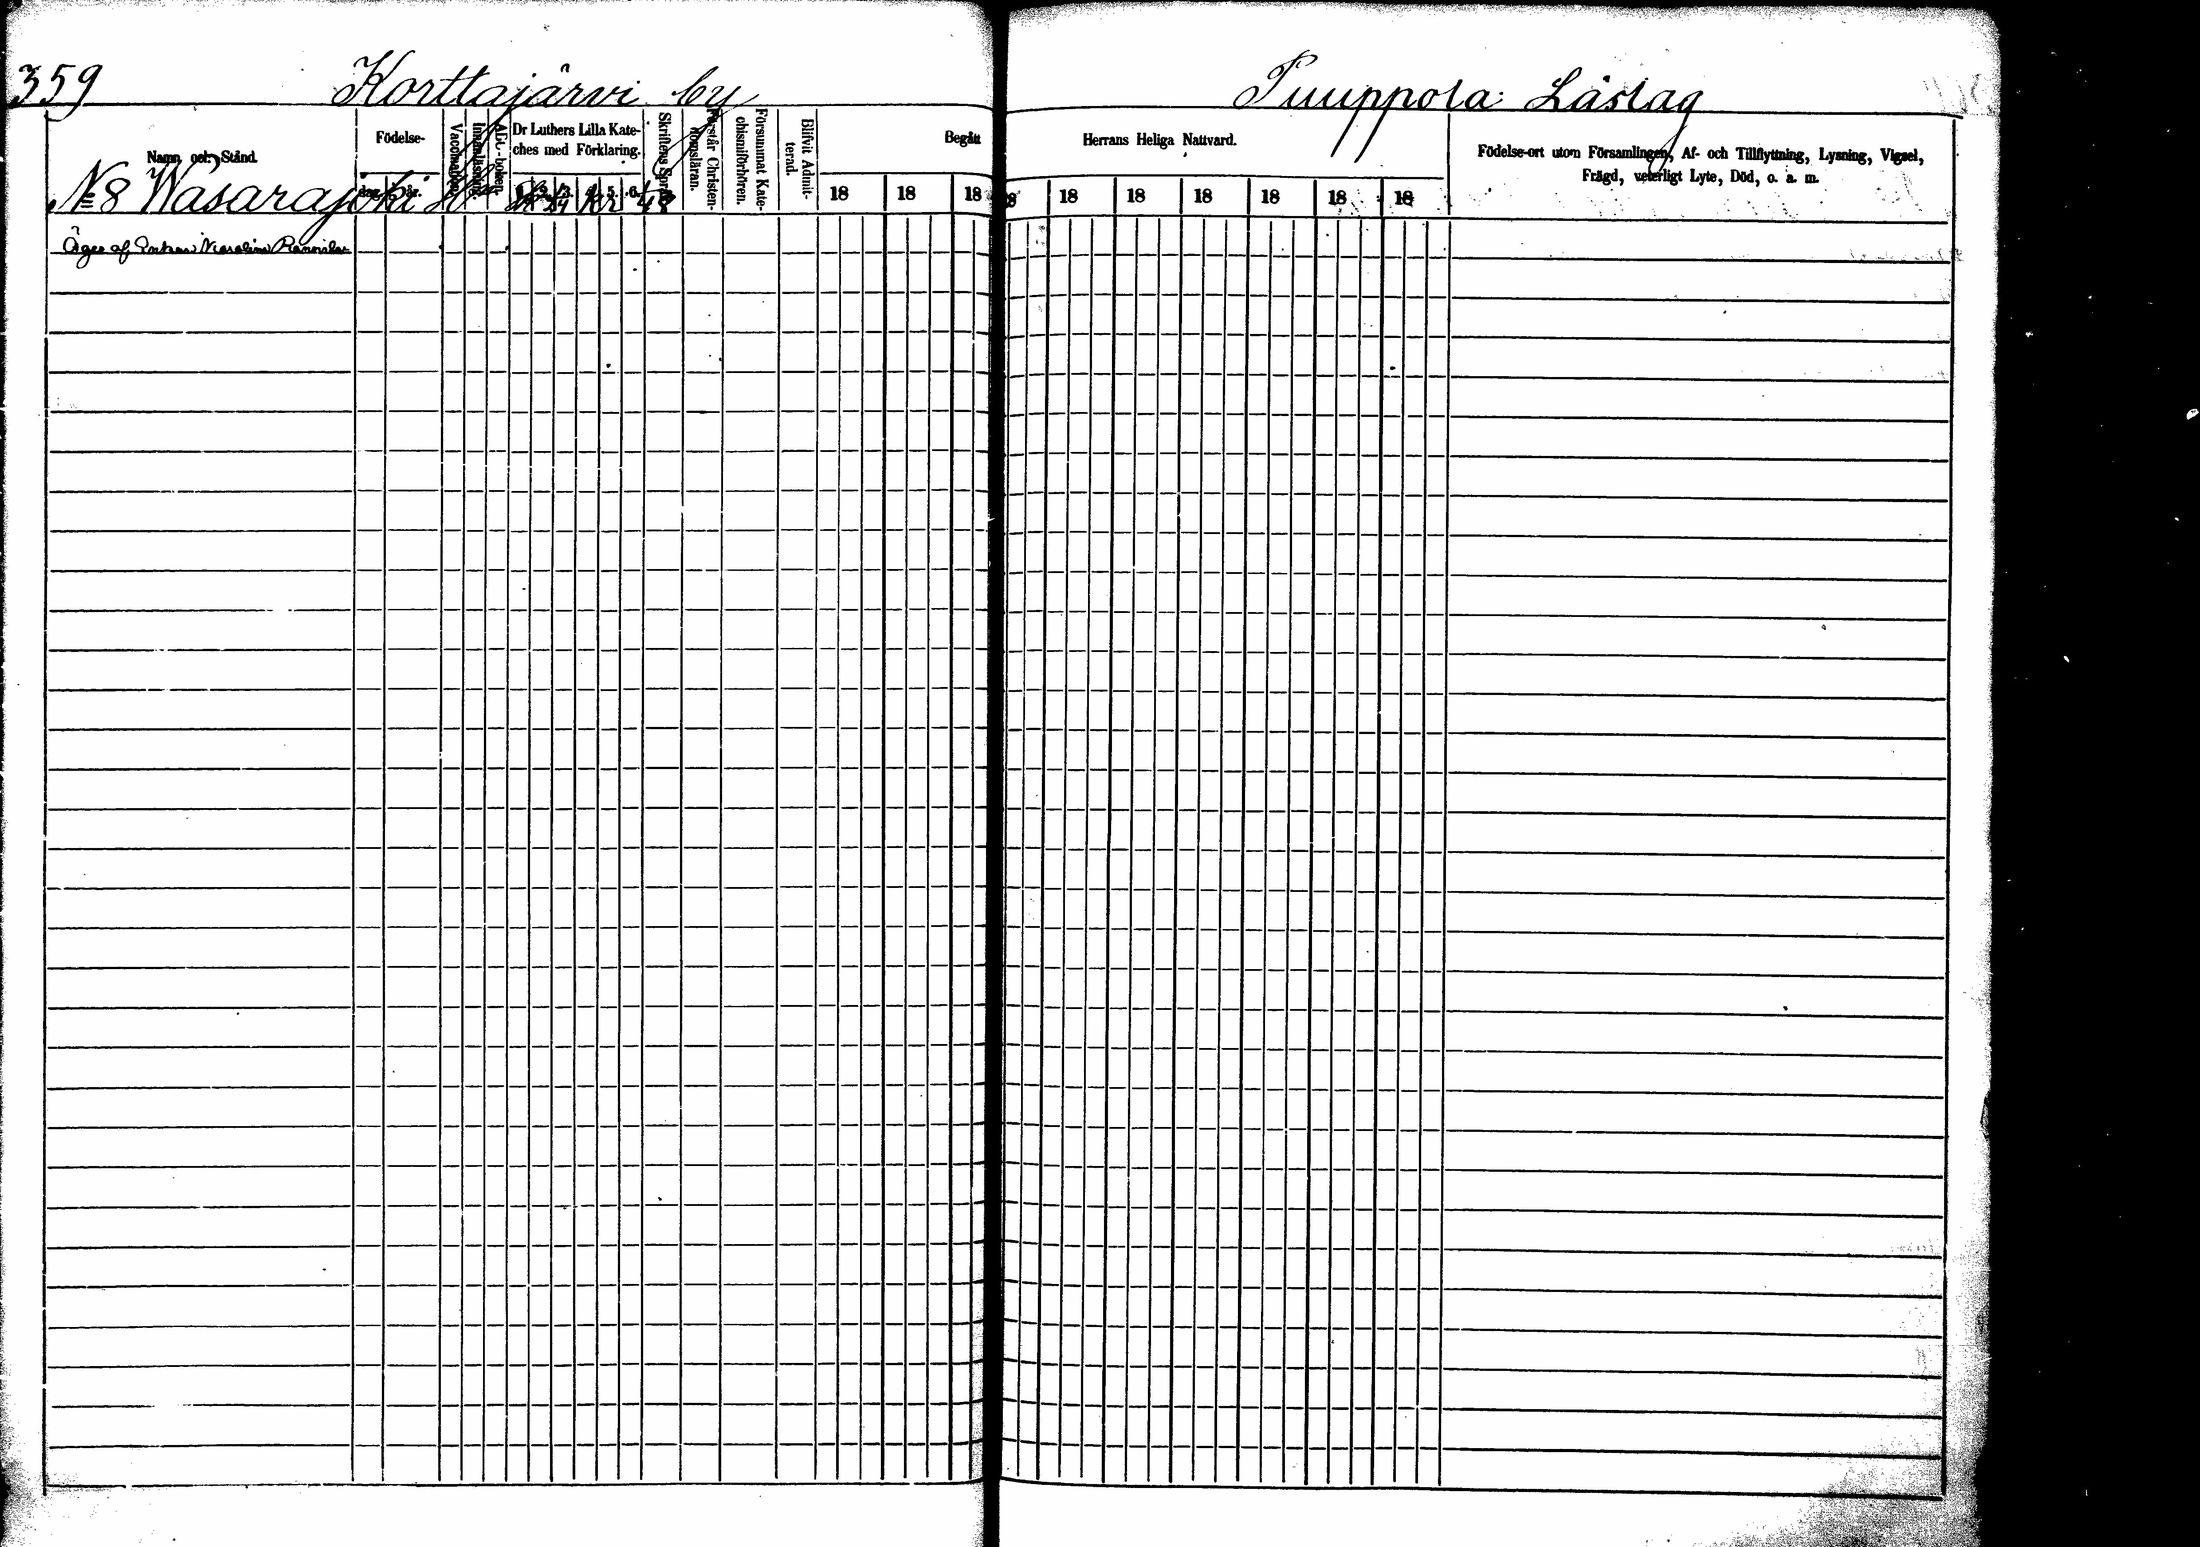 359 Korttajärvi by Puuppola Läslag
Namn och Stånd.
Födelse-
dag. år.
Vaccination.
Innanläsning.
Abc-boken.
Dr Luthers Lilla Kate-
ches med Förklaring.
1. 2. 3. 4. 5. 6.
Skriftens Språk
Förstår Christen-
domsläran.
Försummat Kate-
chismiförhören.
Blifvit Admit-
terad.
Begått Herrans Heliga Nattvard.
18 18 18 18 18 18 18 18 18
Födelse-ort utom Församlingen, Af- och Tillflyttning, Lysning, Vigsel,
Frägd, veterligt Lyte, Död, o. a. m.
N 8 Wasarajoki Kr
Äges af Enkan Karolina